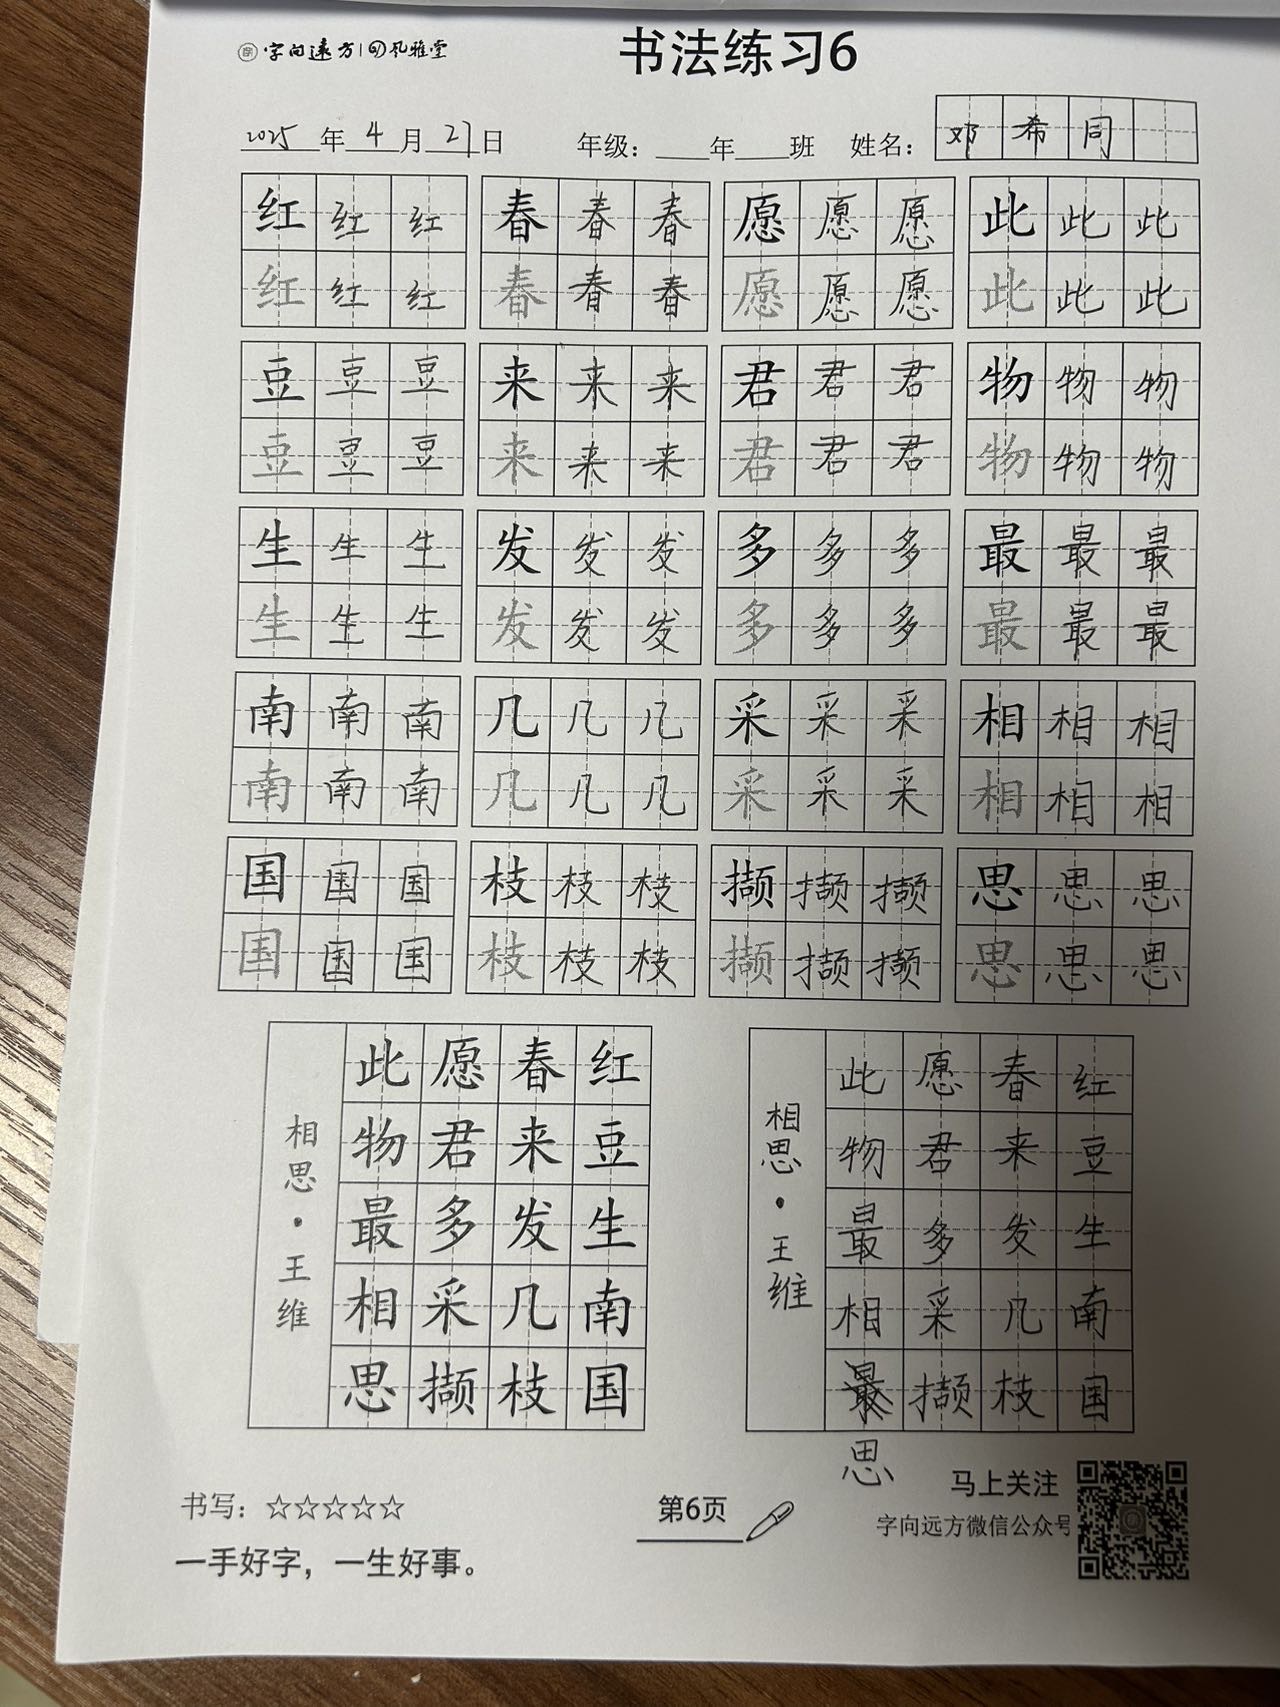 字向远方 风雅堂
书法练习6
2025年4月27日 年级：____年____班 姓名：邓希同
红红红 春春春 愿愿愿 此此此
红红红 春春春 愿愿愿 此此此
豆豆豆 来来来 君君君 物物物
豆豆豆 来来来 君君君 物物物
生生生 发发发 多多多 最最最
生生生 发发发 多多多 最最最
南南南 几几几 采采采 相相相
南南南 几几几 采采采 相相相
国国国 枝枝枝 撷撷撷 思思思
国国国 枝枝枝 撷撷撷 思思思
红豆生南国
春来发几枝
愿君多采撷
此物最相思
相思·王维
红豆生南国
春来发几枝
愿君多采撷
此物最相思
相思·王维
书写：☆☆☆☆☆
一手好字，一生好事。
第6页
马上关注
字向远方微信公众号